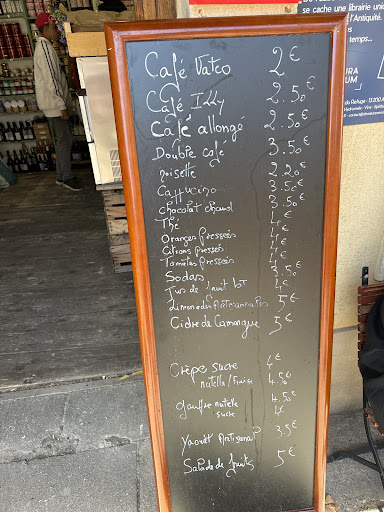 se cache une librairie uni
l'Antiquité.
temps...
Café Vatco 2€
Café Illy 2.50€
Café allongé 2.50€
Double café 3.50€
noisette 2.20€
Cappucino 3.50€
Chocolat chaud 3.50€
Thé 4€
Oranges pressées 4€
Citrons pressées 4€
Tomates pressées 4€
Sodas 3.50€
Jus de fruit bot 4€
Limonades Artisanales 5€
Cidre de Camargue 5€
Crèpe sucre 4€
nutella/Fraise 4.5€
gauffre nutella 4.50€
sucre 4€
Yaourt Artisanal 3.5€
Salade de fruits 5€